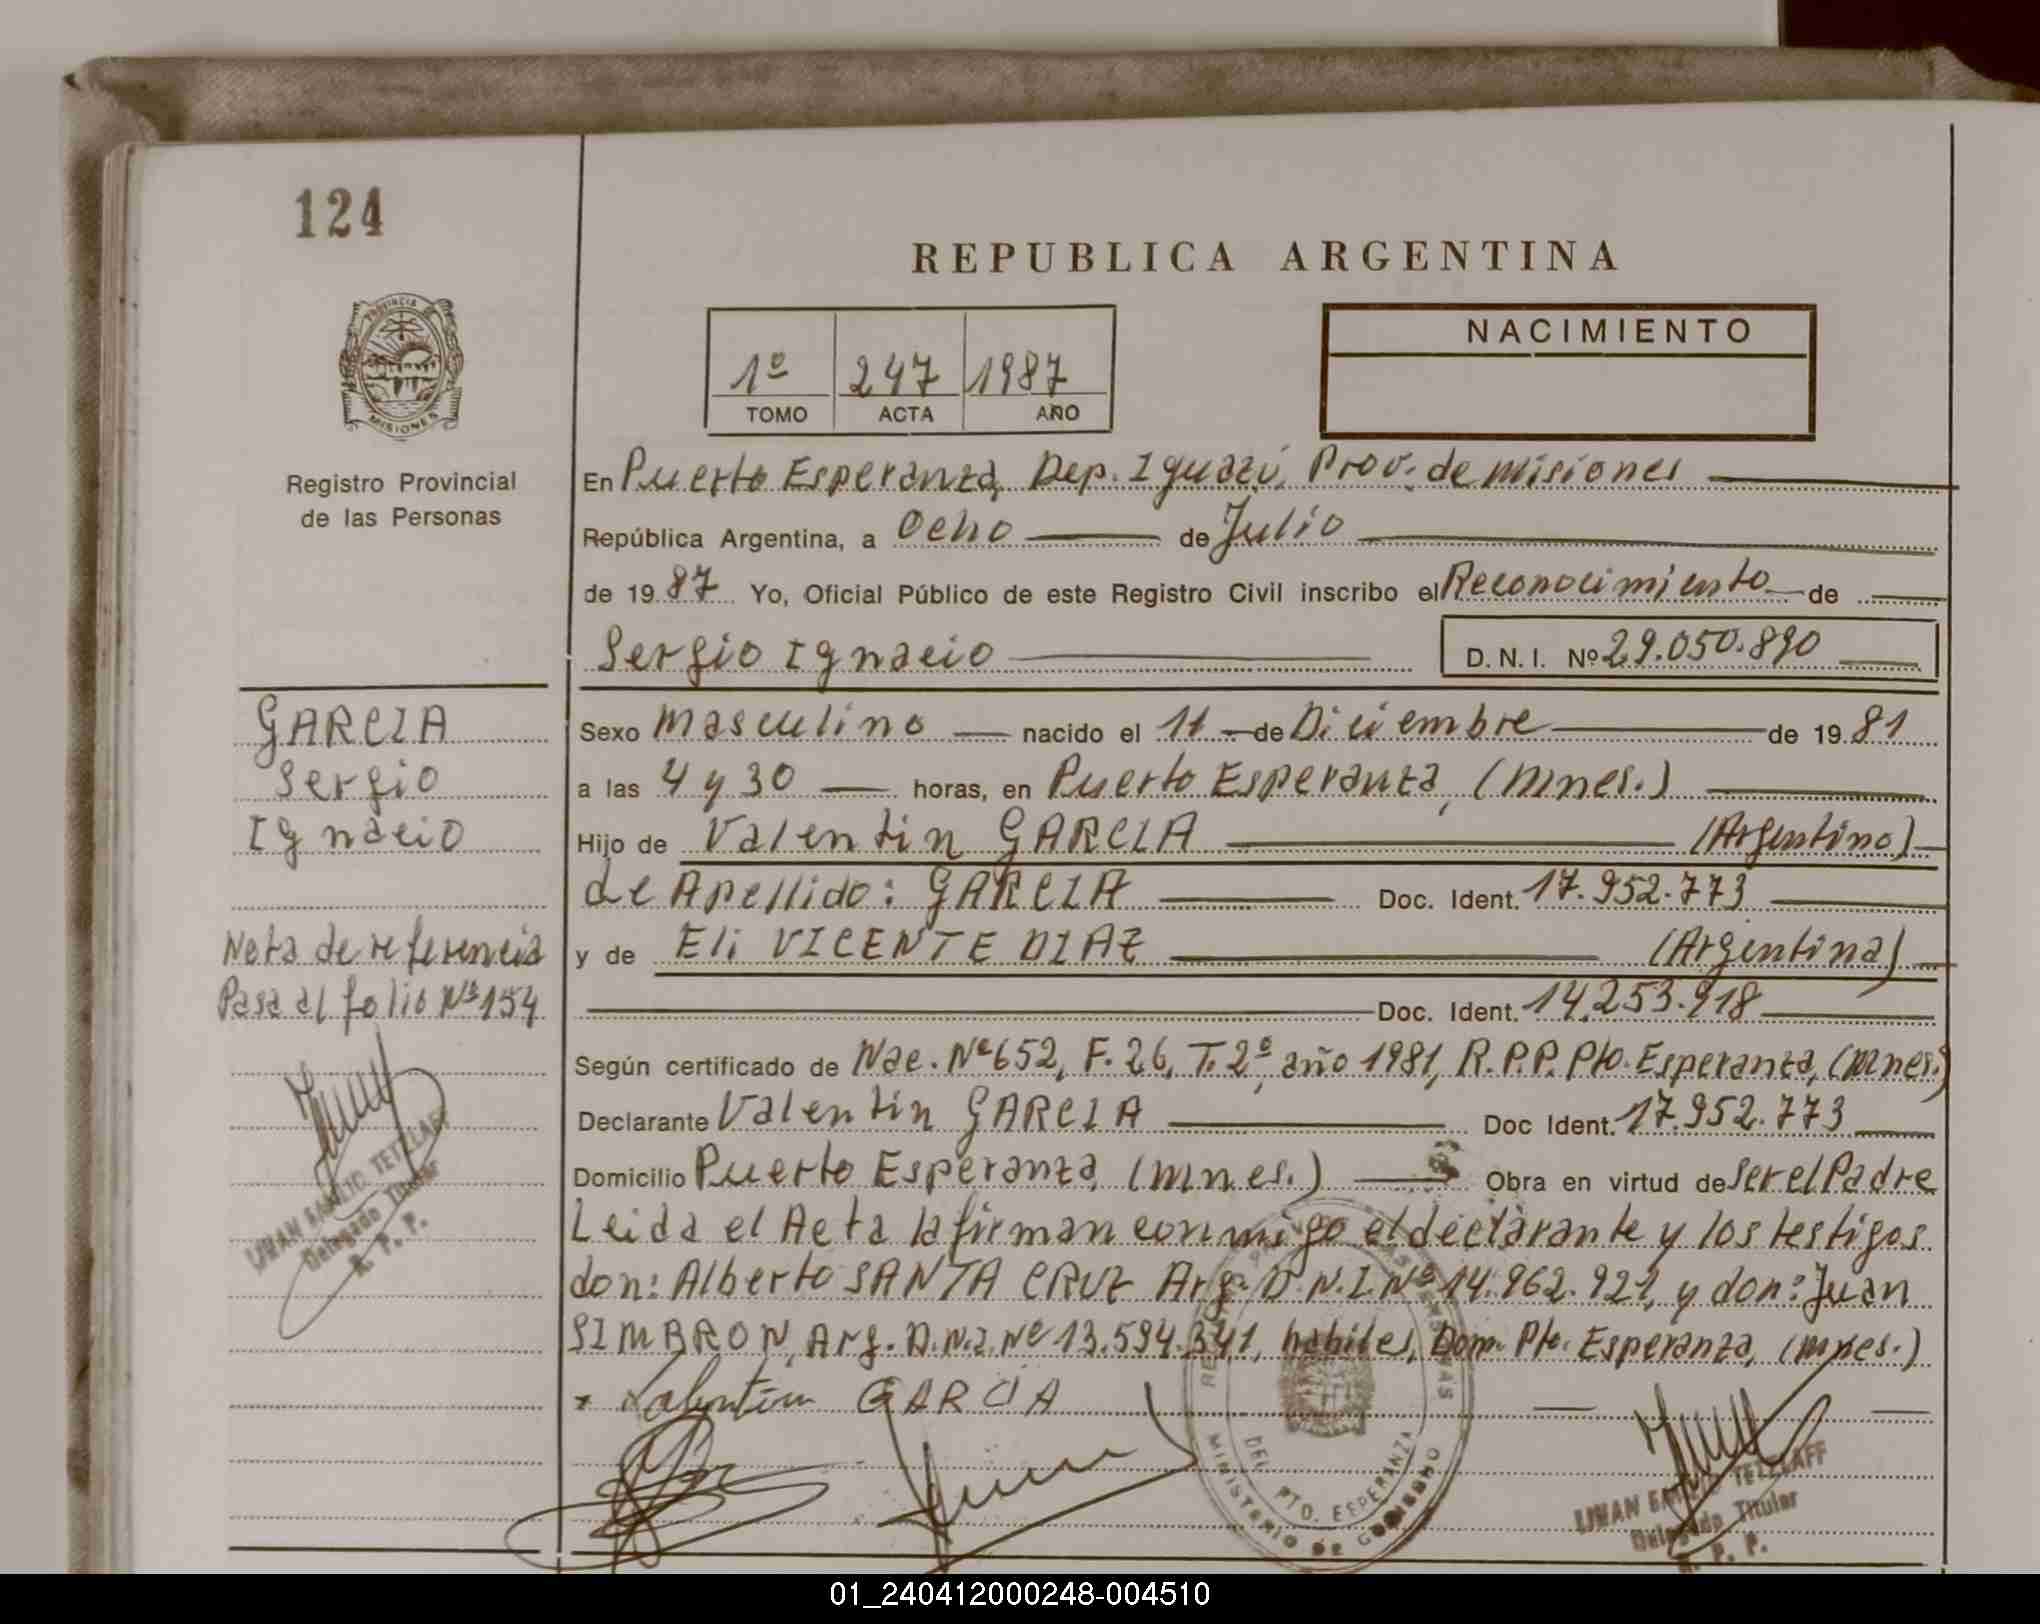 124
REPUBLICA ARGENTINA
PROVINCIA
MISIONES
NACIMIENTO
1º 247 1987
TOMO ACTA AÑO
Registro Provincial
de las Personas
En Puerto Esperanza, Dep. Iguazú, Prov. de Misiones
República Argentina, a Ocho de Julio
de 1987 Yo, Oficial Público de este Registro Civil inscribo el Reconocimiento de
Sergio Ignacio D. N. I. Nº 29.050.890
GARCIA
Sergio
Ignacio
Nota de referencia
Pasa al folio Nº 154
Sexo Masculino nacido el 11 de Diciembre de 1981
a las 4 y 30 horas, en Puerto Esperanza, (Mnes.)
Hijo de Valentin GARCIA (Argentino)
de Apellido: GARCIA Doc. Ident. 17.952.773
y de Eli VICENTE DIAZ (Argentina)
Doc. Ident. 14.253.918
Según certificado de Nac. Nº 652, F. 26, T. 2º, año 1981, R.P.P. Pto. Esperanza, (Mnes.)
Declarante Valentin GARCIA Doc Ident. 17.952.773
Domicilio Puerto Esperanza, (Mnes.) Obra en virtud de Ser el Padre
Leida el Acta la firman conmigo el declarante y los testigos
don: Alberto SANTA CRUZ Arg. D.N.I. Nº 14.962.921, y don: Juan
SIMBRON, Arg. D.N.I. Nº 13.594.341, habiles, Dom. Pto. Esperanza, (Mnes.)
Valentin GARCIA
DEL PTO. ESPERANZA
MINISTERIO DE GOBIERNO
TETZLAFF
Delegado Titular
R. P. P.
TETZLAFF
Delegado Titular
R. P. P.
01_240412000248-004510